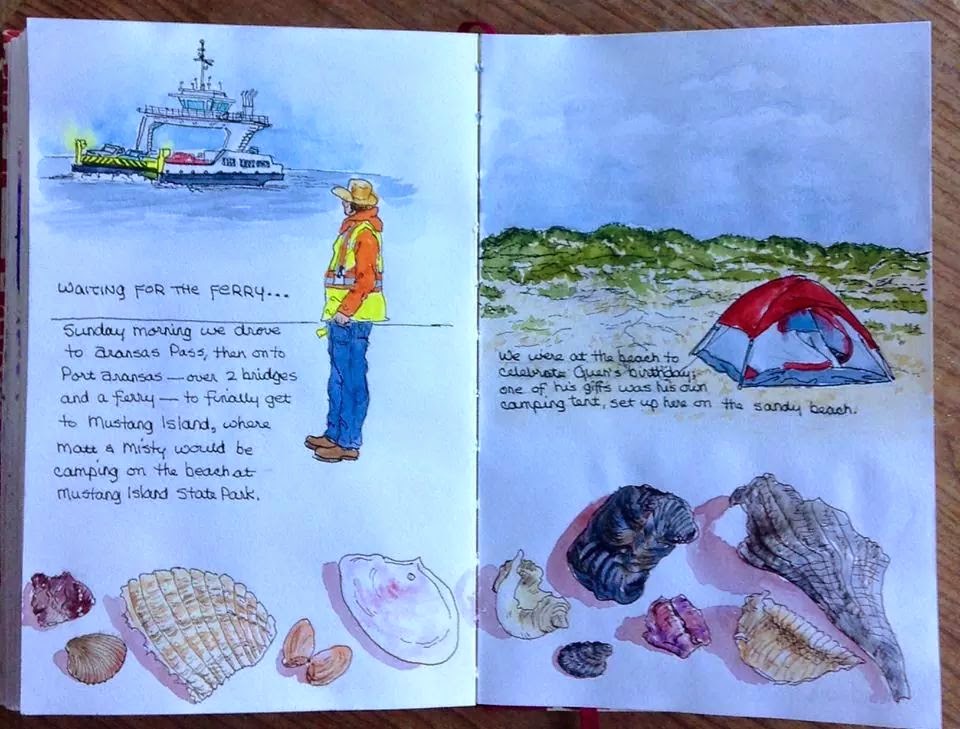 WAITING FOR THE FERRY...
Sunday morning we drove
to Aransas Pass, then onto
Port Aransas — over 2 bridges
and a ferry — to finally get
to Mustang Island, where
Matt & Misty would be
camping on the beach at
Mustang Island State Park.
We were at the beach to
celebrate Owen's birthday;
one of his gifts was his own
camping tent, set up here on the sandy beach.